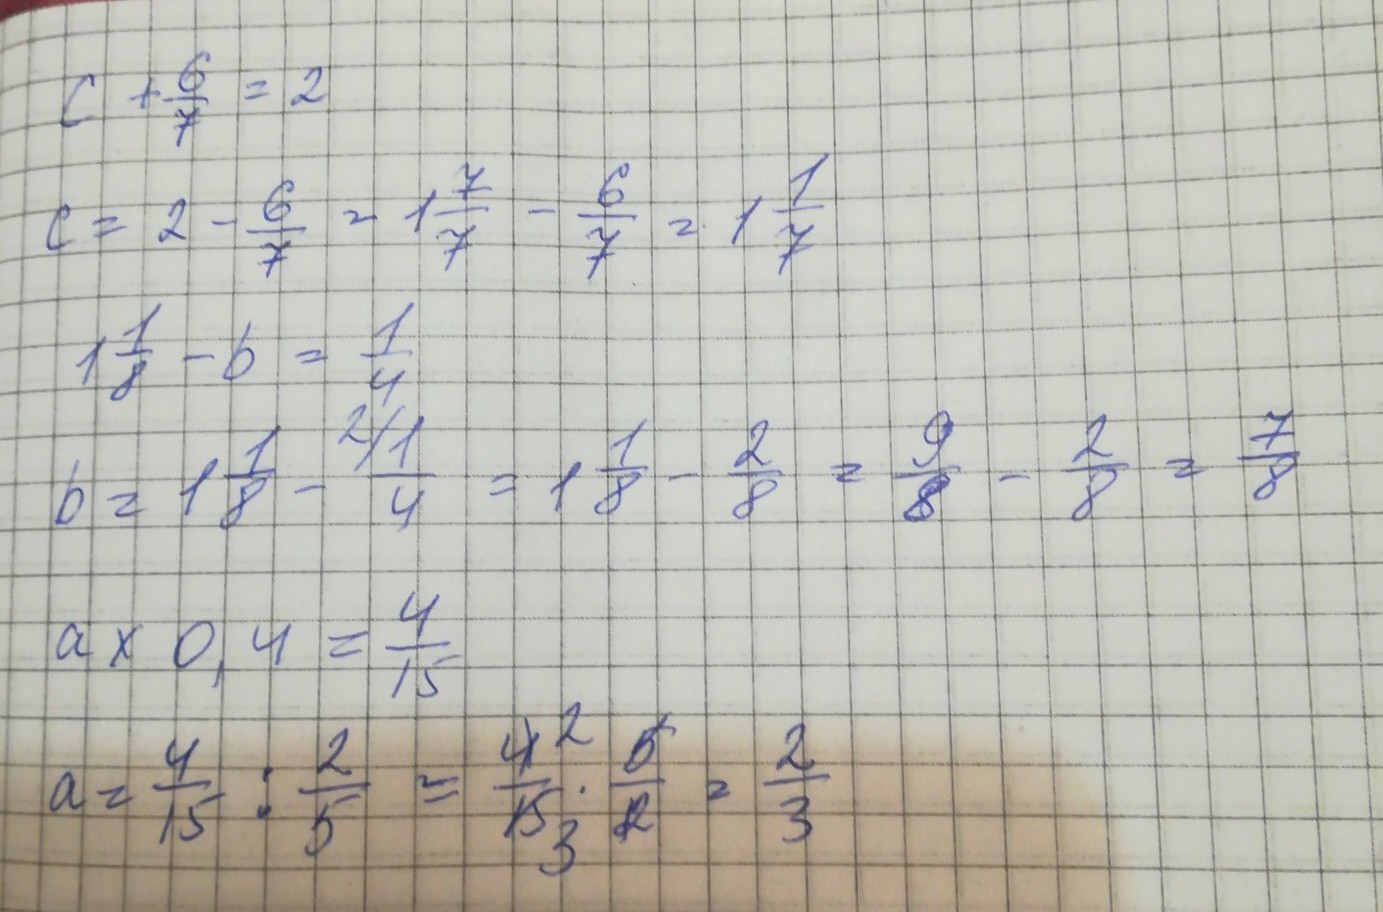 c + 6/7 = 2
c = 2 - 6/7 = 1 7/7 - 6/7 = 1 1/7
1 1/8 - b = 1/4
b = 1 1/8 - 2/ 1/4 = 1 1/8 - 2/8 = 9/8 - 2/8 = 7/8
a x 0,4 = 4/15
a = 4/15 : 2/5 = 4 2/15 3 · 5/2 = 2/3